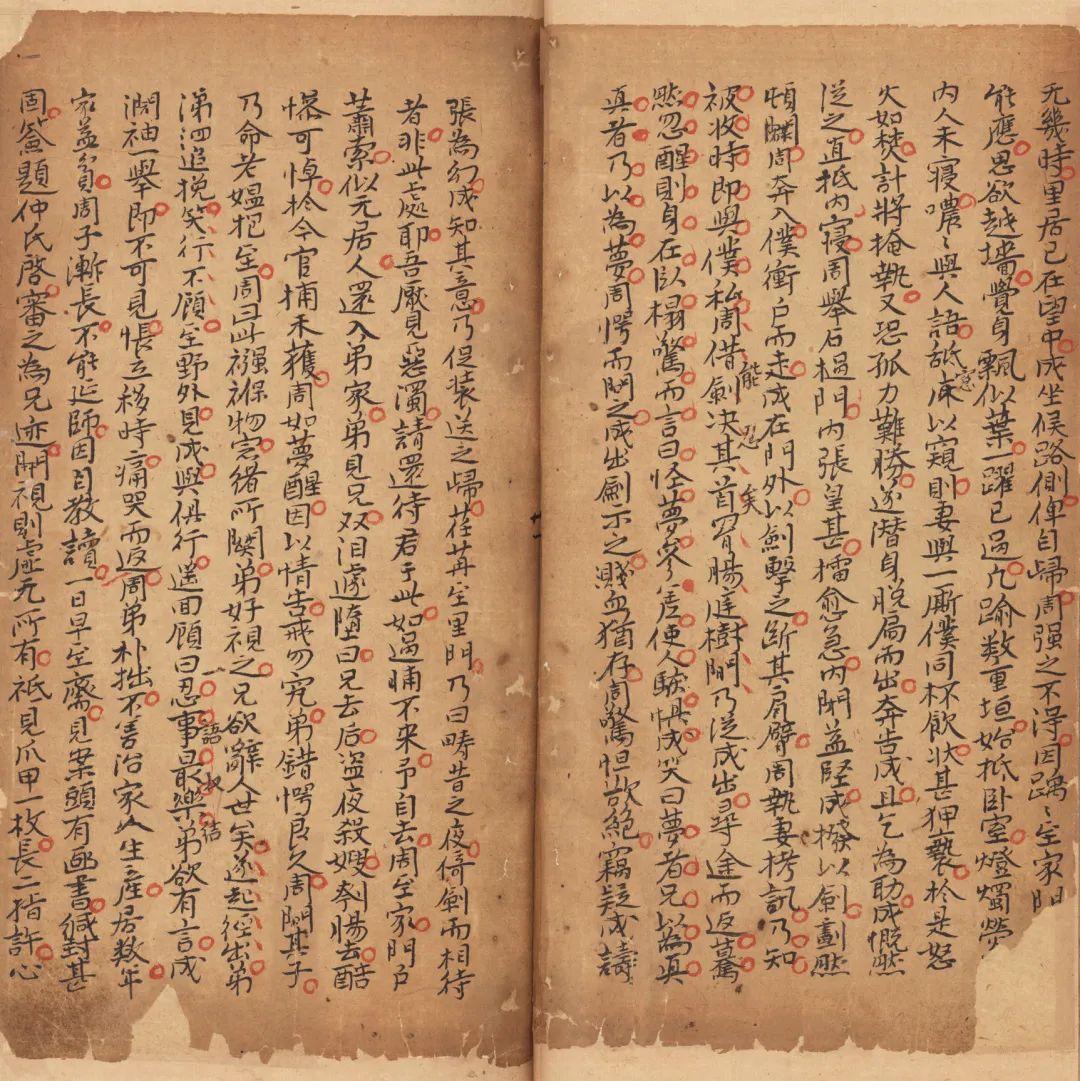 无幾時里居已在望中成坐候路側俾自歸周强之不得因踽〻至家門
能應思欲越墻覺身飄似葉一躍已過凡踰数重垣始抵卧室燈燭熒
内人未寝噥〻與人語舐床以窺則妻與一厮僕同杯飲狀甚狎褻於是怒
窓
火如焚計將掩執又恐孤力難勝遂潜身脱扃而出奔告成且乞為助成慨然
從之直抵内寝周舉石撾門内張皇甚擂愈急内閉益堅成撥以劍劃然
頓闢周奔入僕衝户而走成在門外以劍擊之断其肩臂周執妻拷訊乃知
能忍矣
被收時即與僕私周借劍决其首罥腸庭樹間乃從成出尋途而返驀
然忽醒則身在卧榻驚而言曰怪夢參差使人駭惧成笑曰夢者兄以為真
真者乃以為夢周愕而問之成出劍示之濺血猶存周驚怛欲絶竊疑成譸
張為幻成知其意乃促装送之歸荏苒至里門乃曰疇昔之夜倚劍而相待
者非此處耶吾厭見惡濁請還待君于此如過晡不來予自去周至家門户
蕭索似无居人還入弟家弟見兄双泪遽墮曰兄去后盗夜殺嫂刳腸去酷
惨可悼於今官捕未獲周如夢醒因以情告戒勿究弟錯愕良久周問其子
乃命老媼抱至周曰此襁褓物宗緒所関弟好視之兄欲辭人世矣遂起徑出弟
涕泗追挽笑行不顧至野外見成與俱行遥回顧曰忍事最樂弟欲有言成
語
濶袖一舉即不可見悵立移時痛哭而返周弟朴拙不善治家人生産居数年
家益貧周子漸長不能延師因自教讀一日早至齋見案頭有函書緘封甚
固簽題仲氏啓審之為兄迹開視則虚无所有祇見爪甲一枚長二指許心